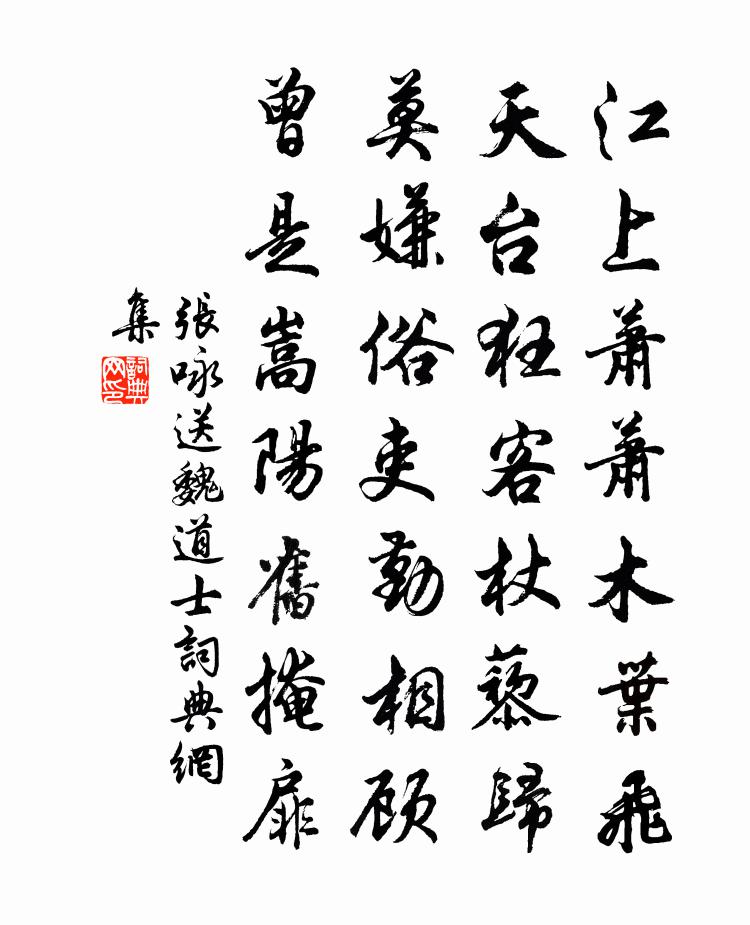 江上蕭蕭木葉飛
天台狂客杖藜歸
莫嫌俗吏勤相顧
曾是嵩陽舊掩扉
張咏送魏道士詞典網
集
詞典
网印